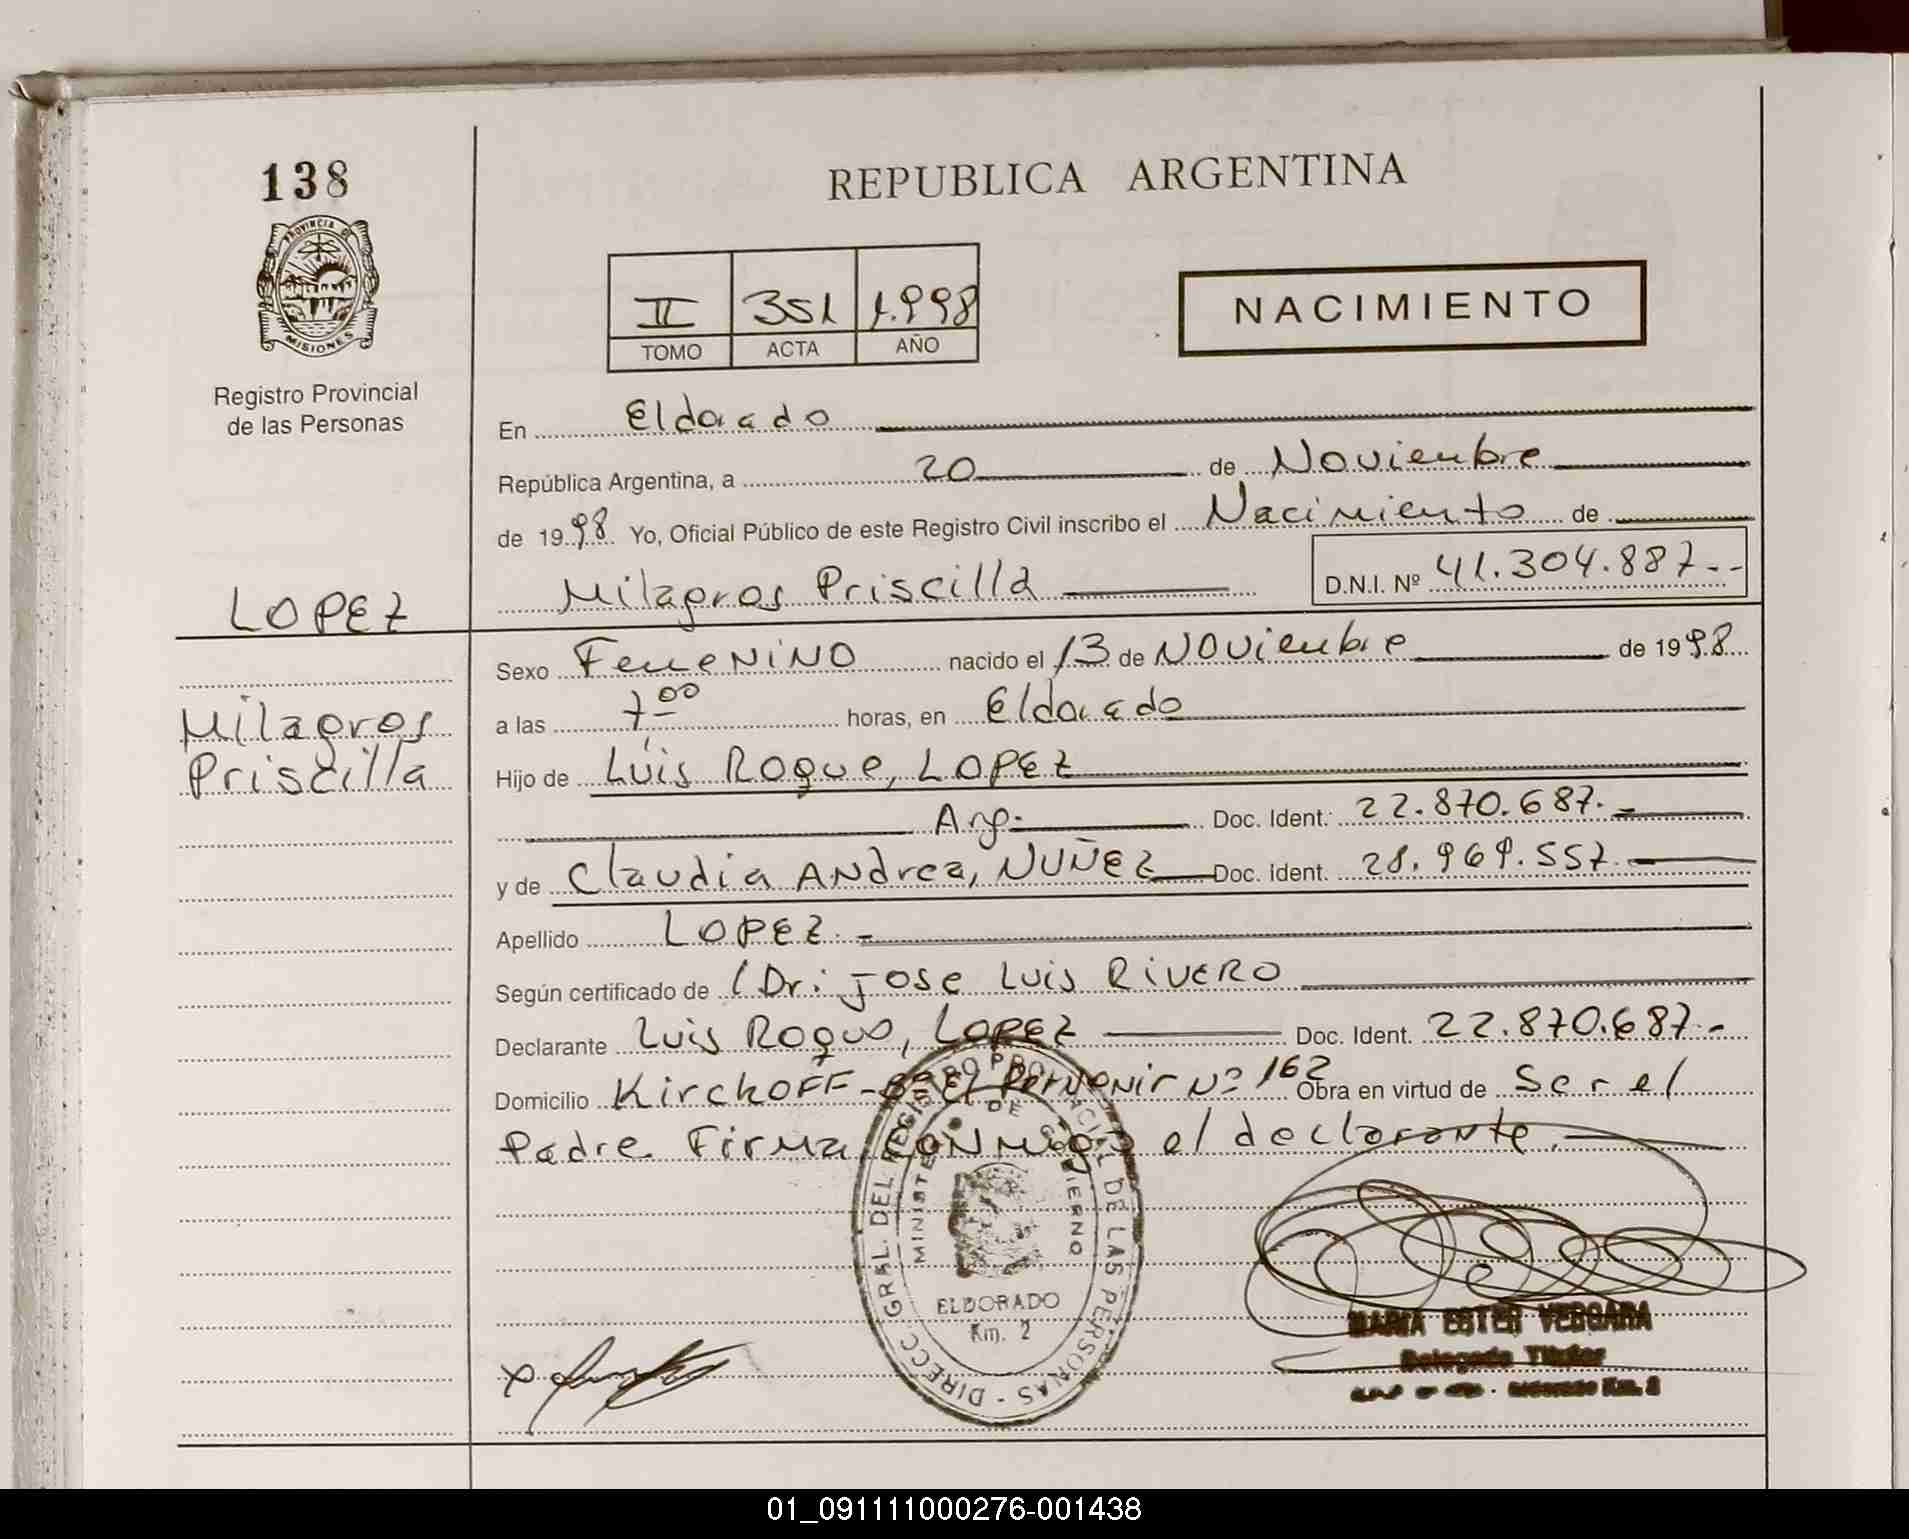 138
PROVINCIA D
MISIONES
Registro Provincial
de las Personas
REPUBLICA ARGENTINA
II 351 1.998
TOMO ACTA AÑO
NACIMIENTO
En Eldorado
República Argentina, a 20 de Noviembre
de 1998 Yo, Oficial Público de este Registro Civil inscribo el Nacimiento de
Milagros Priscilla D.N.I. Nº 41.304.887.--
LOPEZ
Sexo FemeNiNO nacido el 13 de NOViembre de 1998
Milagros
Priscilla
a las 7 00 horas, en Eldorado
Hijo de Luis Roque, LOPEZ
Arg. Doc. Ident.: 22.870.687.-
y de Claudia ANdrea, NUÑEZ Doc. Ident. 28.969.557.-
Apellido LOPEZ.-
Según certificado de (Dr: jose Luis RiVERO
Declarante Luis Roque, LOPEZ Doc. Ident. 22.870.687.-
Domicilio KirckOFF - El Porvenir Nº 162 Obra en virtud de Ser el
Padre Firma CONMigo el declarante.-
DIRECC. GRAL. DEL REGISTRO PROVINCIAL DE LAS PERSONAS -
MINISTE DE GOBIERNO
ELDORADO
Km. 2
MARIA ESTER VERGARA
Delegada Titular
Km. 2
01_091111000276-001438